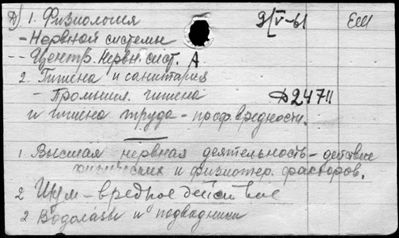 А) 1. Физиология 9/V-61 ЕШ
- Нервной системы
-- Центр. нервн. сист. А
2. Гигиена и санитария
- Промышл. гигиена Д24711
и гигиена труда - проф. вредности.
1 Высшая нервная деятельность - действие
химических и физиотер. факторов.
2 Шум - вредное действие
2 Водолазы и подводники